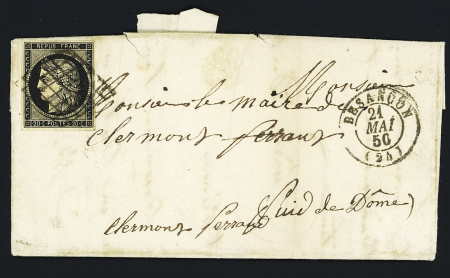 REPUB. FRANC.
20 C POSTES 20 C
BESANÇON
21
MAI
50
(24)
Monsieur
Monsieur le maire de
Clermont ferrant
Clermont Ferrand
Puid de Dôme)